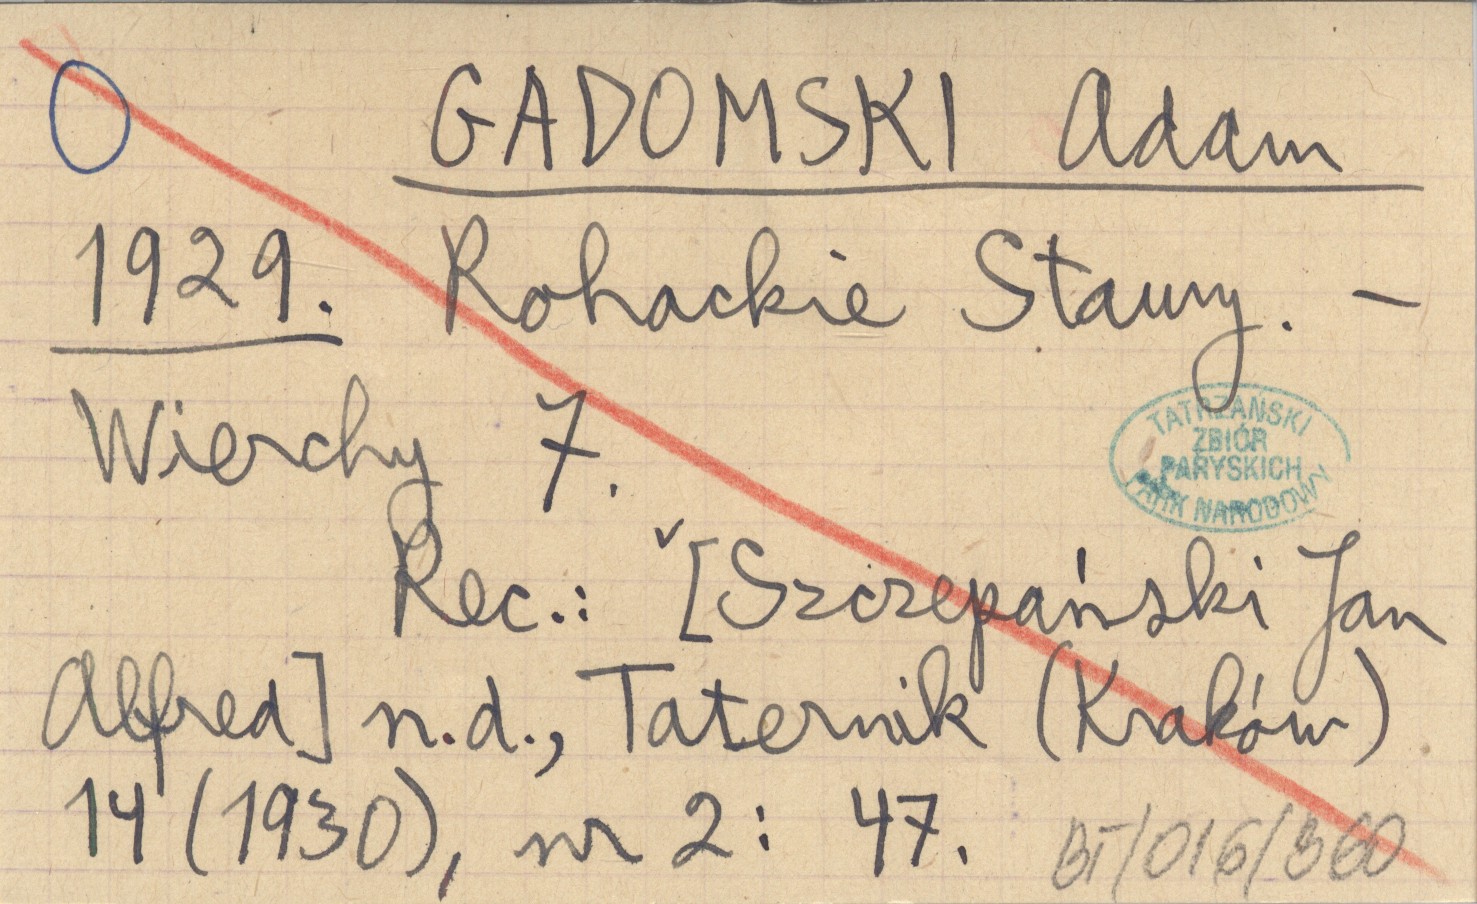 GADOMSKI Adam
1929. Rohackie Stawy. –
Wierchy 7.
TATRZAŃSKI
ZBIÓR
PARYSKICH
PARK NARODOWY
Rec.: ᵛ[Szczepański Jan
Alfred] n.d., Taternik (Kraków)
14 (1930), nr 2: 47.
BT/016/360